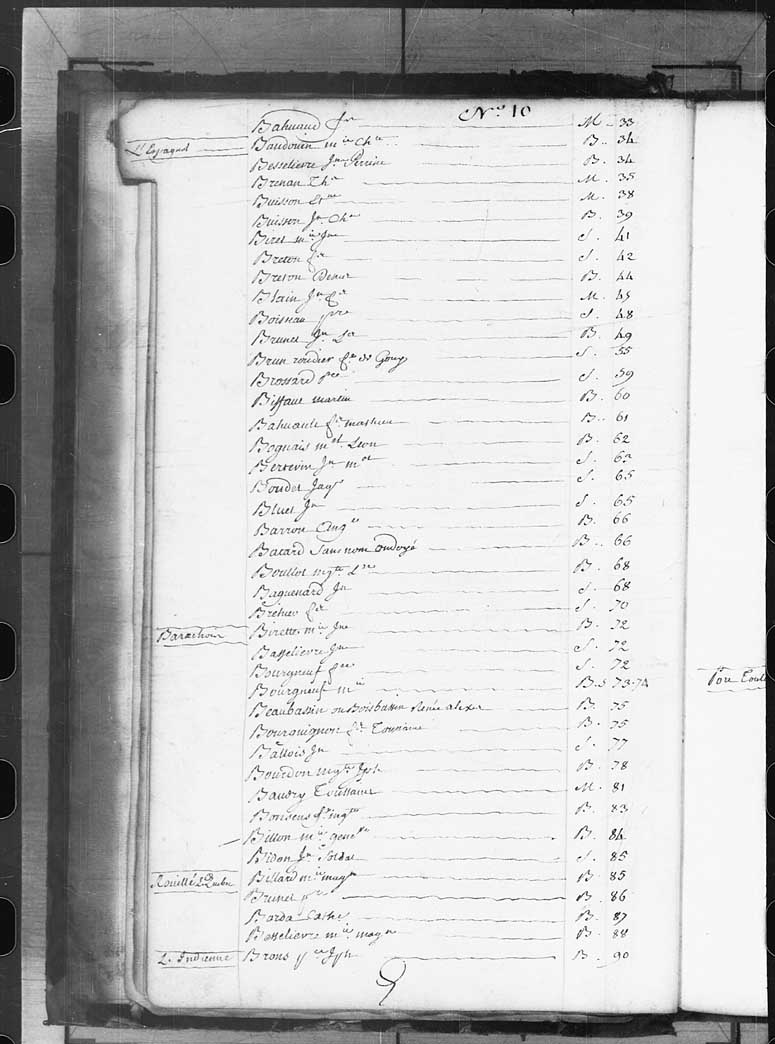 No 10
Bahuaud Jn M. 33
L'Espagnol Baudouin mie Che B. 34
Besselievre Jne Perrine B. 34
Brenan Ths M. 35
Buisson M. 38
Buisson Jn Che B. 39
Biret mie Jne S. 41
Breton fs S. 42
Breton Denis B. 44
Blain Jn fs M. 45
Boisseau pre S. 48
Brunet Jn B. 49
Brun roudier de Gouy S. 55
Brossard pre S. 59
Biffaue martin B. 60
Bahuault mathieu B. 61
Bognais mel Leon B. 62
Bertevin Jn mel S. 63
Boudet Jaqs S. 65
Bluet Jn S. 65
Barron Angle B. 66
Bacard Sans nom ondoyé B. 66
Boullot mgte B. 68
Baguenard Jn S. 68
Brehier S. 70
Barachois Birette mie Jne B. 72
Basselievre Jne S. 72
Bourgneuf S. 72
Bourgneuf mie B.S 73.74
Beaubassin ou Boisbassin Renée alexis B. 75
Bourguignon B. 75
Ballois Jn S. 77
Bourdon mgte Jph B. 78
Baudry Toussaint M. 81
B. 83
Billon mie geneve B. 84
Bidon Jn Soldat S. 85
Billard mie magne B. 85
Brunet B. 86
Barda Cathe B. 87
Besselievre mie magne B. 88
L'Indienne Brons Jph B. 90